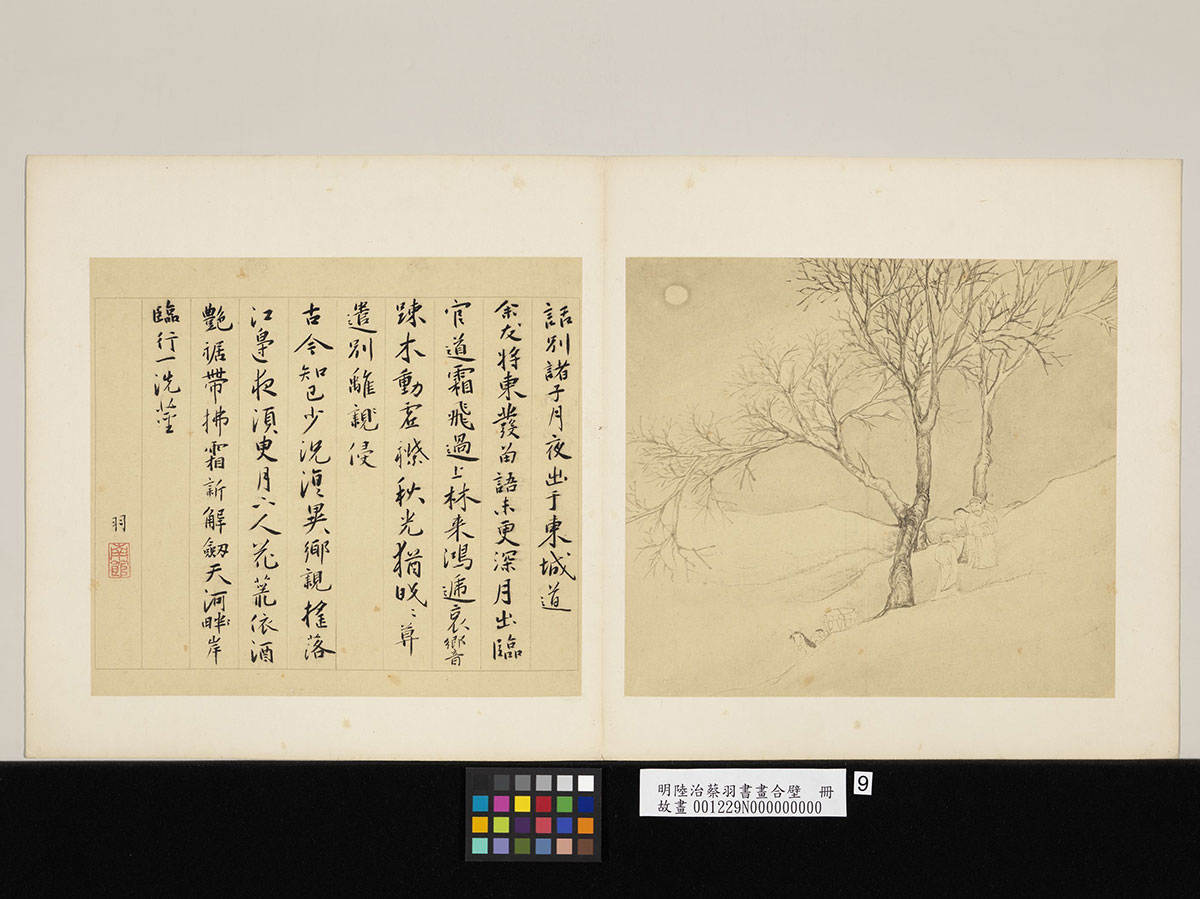 話別諸子月夜出于東城道
余友将東發畄語未更深月出臨
官道霜飛過上林来鴻遞哀響
踈木動虚襟秋光猶尊
遣別離親侵
古今知己少況復異鄉親搖落
江臯夜湏臾月下人花依酒
艷裾帶拂霜新解劔天河畔岸
臨行一洗塵
羽
南館
明陸治蔡羽書畫合璧 冊
故畫 001229N000000000
9